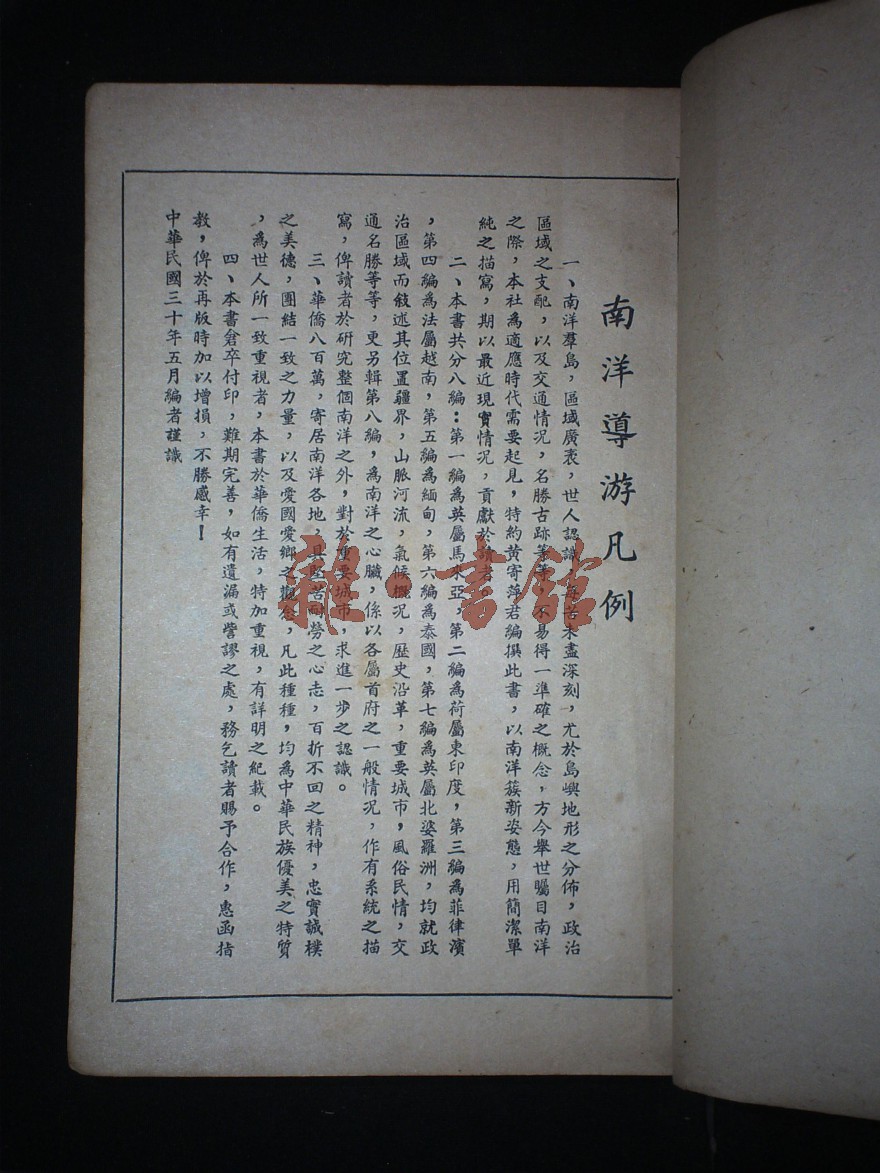 南洋導游凡例
一、南洋羣島，區域廣袤，世人認識，每苦未盡深刻，尤於島嶼地形之分佈，政治
區域之支配，以及交通情況，名勝古跡等等，不易得一準確之概念，方今舉世矚目南洋
之際，本社為適應時代需要起見，特約黃寄萍君編撰此書，以南洋簇新姿態，用簡潔單
純之描寫，期以最近現實情況，貢獻於讀者。
二、本書共分八編：第一編為英屬馬來亞，第二編為荷屬東印度，第三編為菲律濱
，第四編為法屬越南，第五編為緬甸，第六編為泰國，第七編為英屬北婆羅洲，均就政
治區域而敍述其位置疆界，山脈河流，氣候概況，歷史沿革，重要城市，風俗民情，交
通名勝等等，更另輯第八編，為南洋之心臟，係以各屬首府之一般情況，作有系統之描
寫，俾讀者於研究整個南洋之外，對於重要城市，求進一步之認識。
三、華僑八百萬，寄居南洋各地，具堅苦耐勞之心志，百折不回之精神，忠實誠樸
之美德，團結一致之力量，以及愛國愛鄉之觀念，凡此種種，均為中華民族優美之特質
，為世人所一致重視者，本書於華僑生活，特加重視，有詳明之紀載。
四、本書倉卒付印，難期完善，如有遺漏或訾謬之處，務乞讀者賜予合作，惠函指
教，俾於再版時加以增損，不勝感幸！
中華民國三十年五月編者謹識
雜·書館